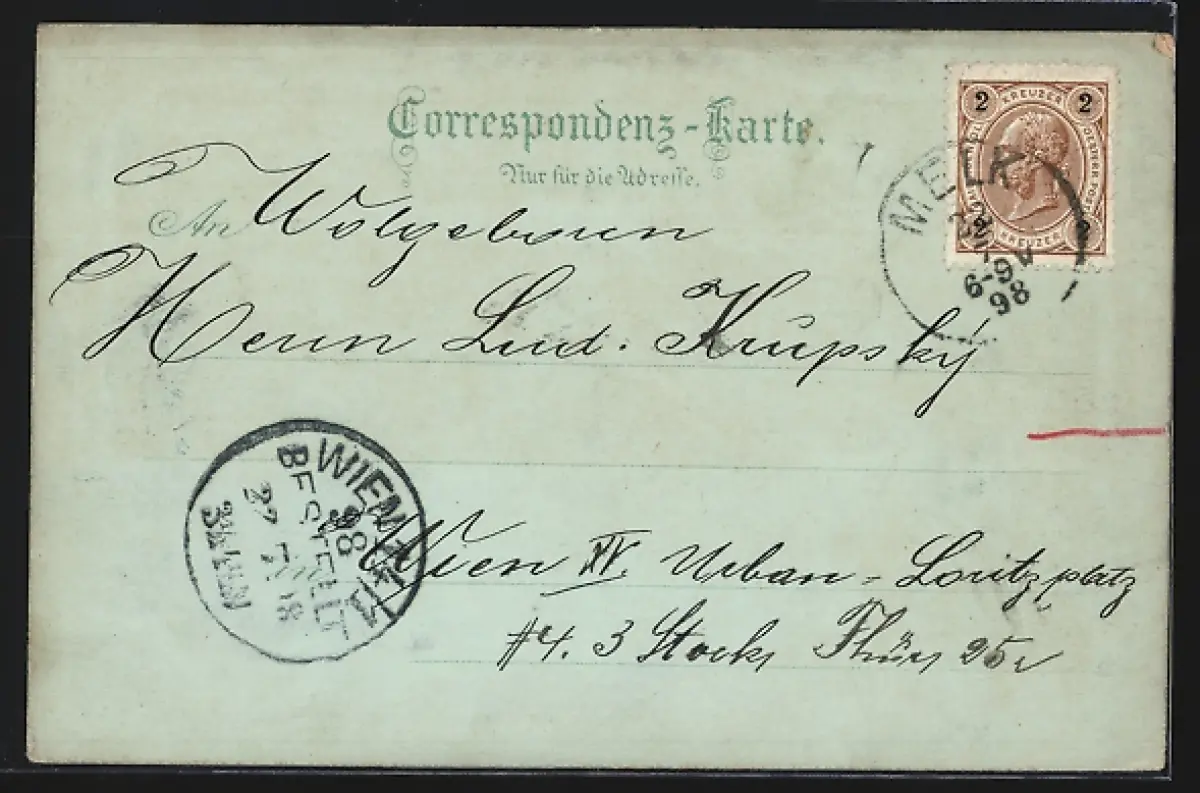 Correspondenz-Karte.
Nur für die Adresse.
An Wolgeboren
Herrn Lud. Krupský
Wien XV. Urban-Loritzplatz
#4. 3 Stock, Thür 25
2 KREUZER 2
2 KREUZER 2
MELK
6-9V
98
WIEN
BESTELLT
98
27